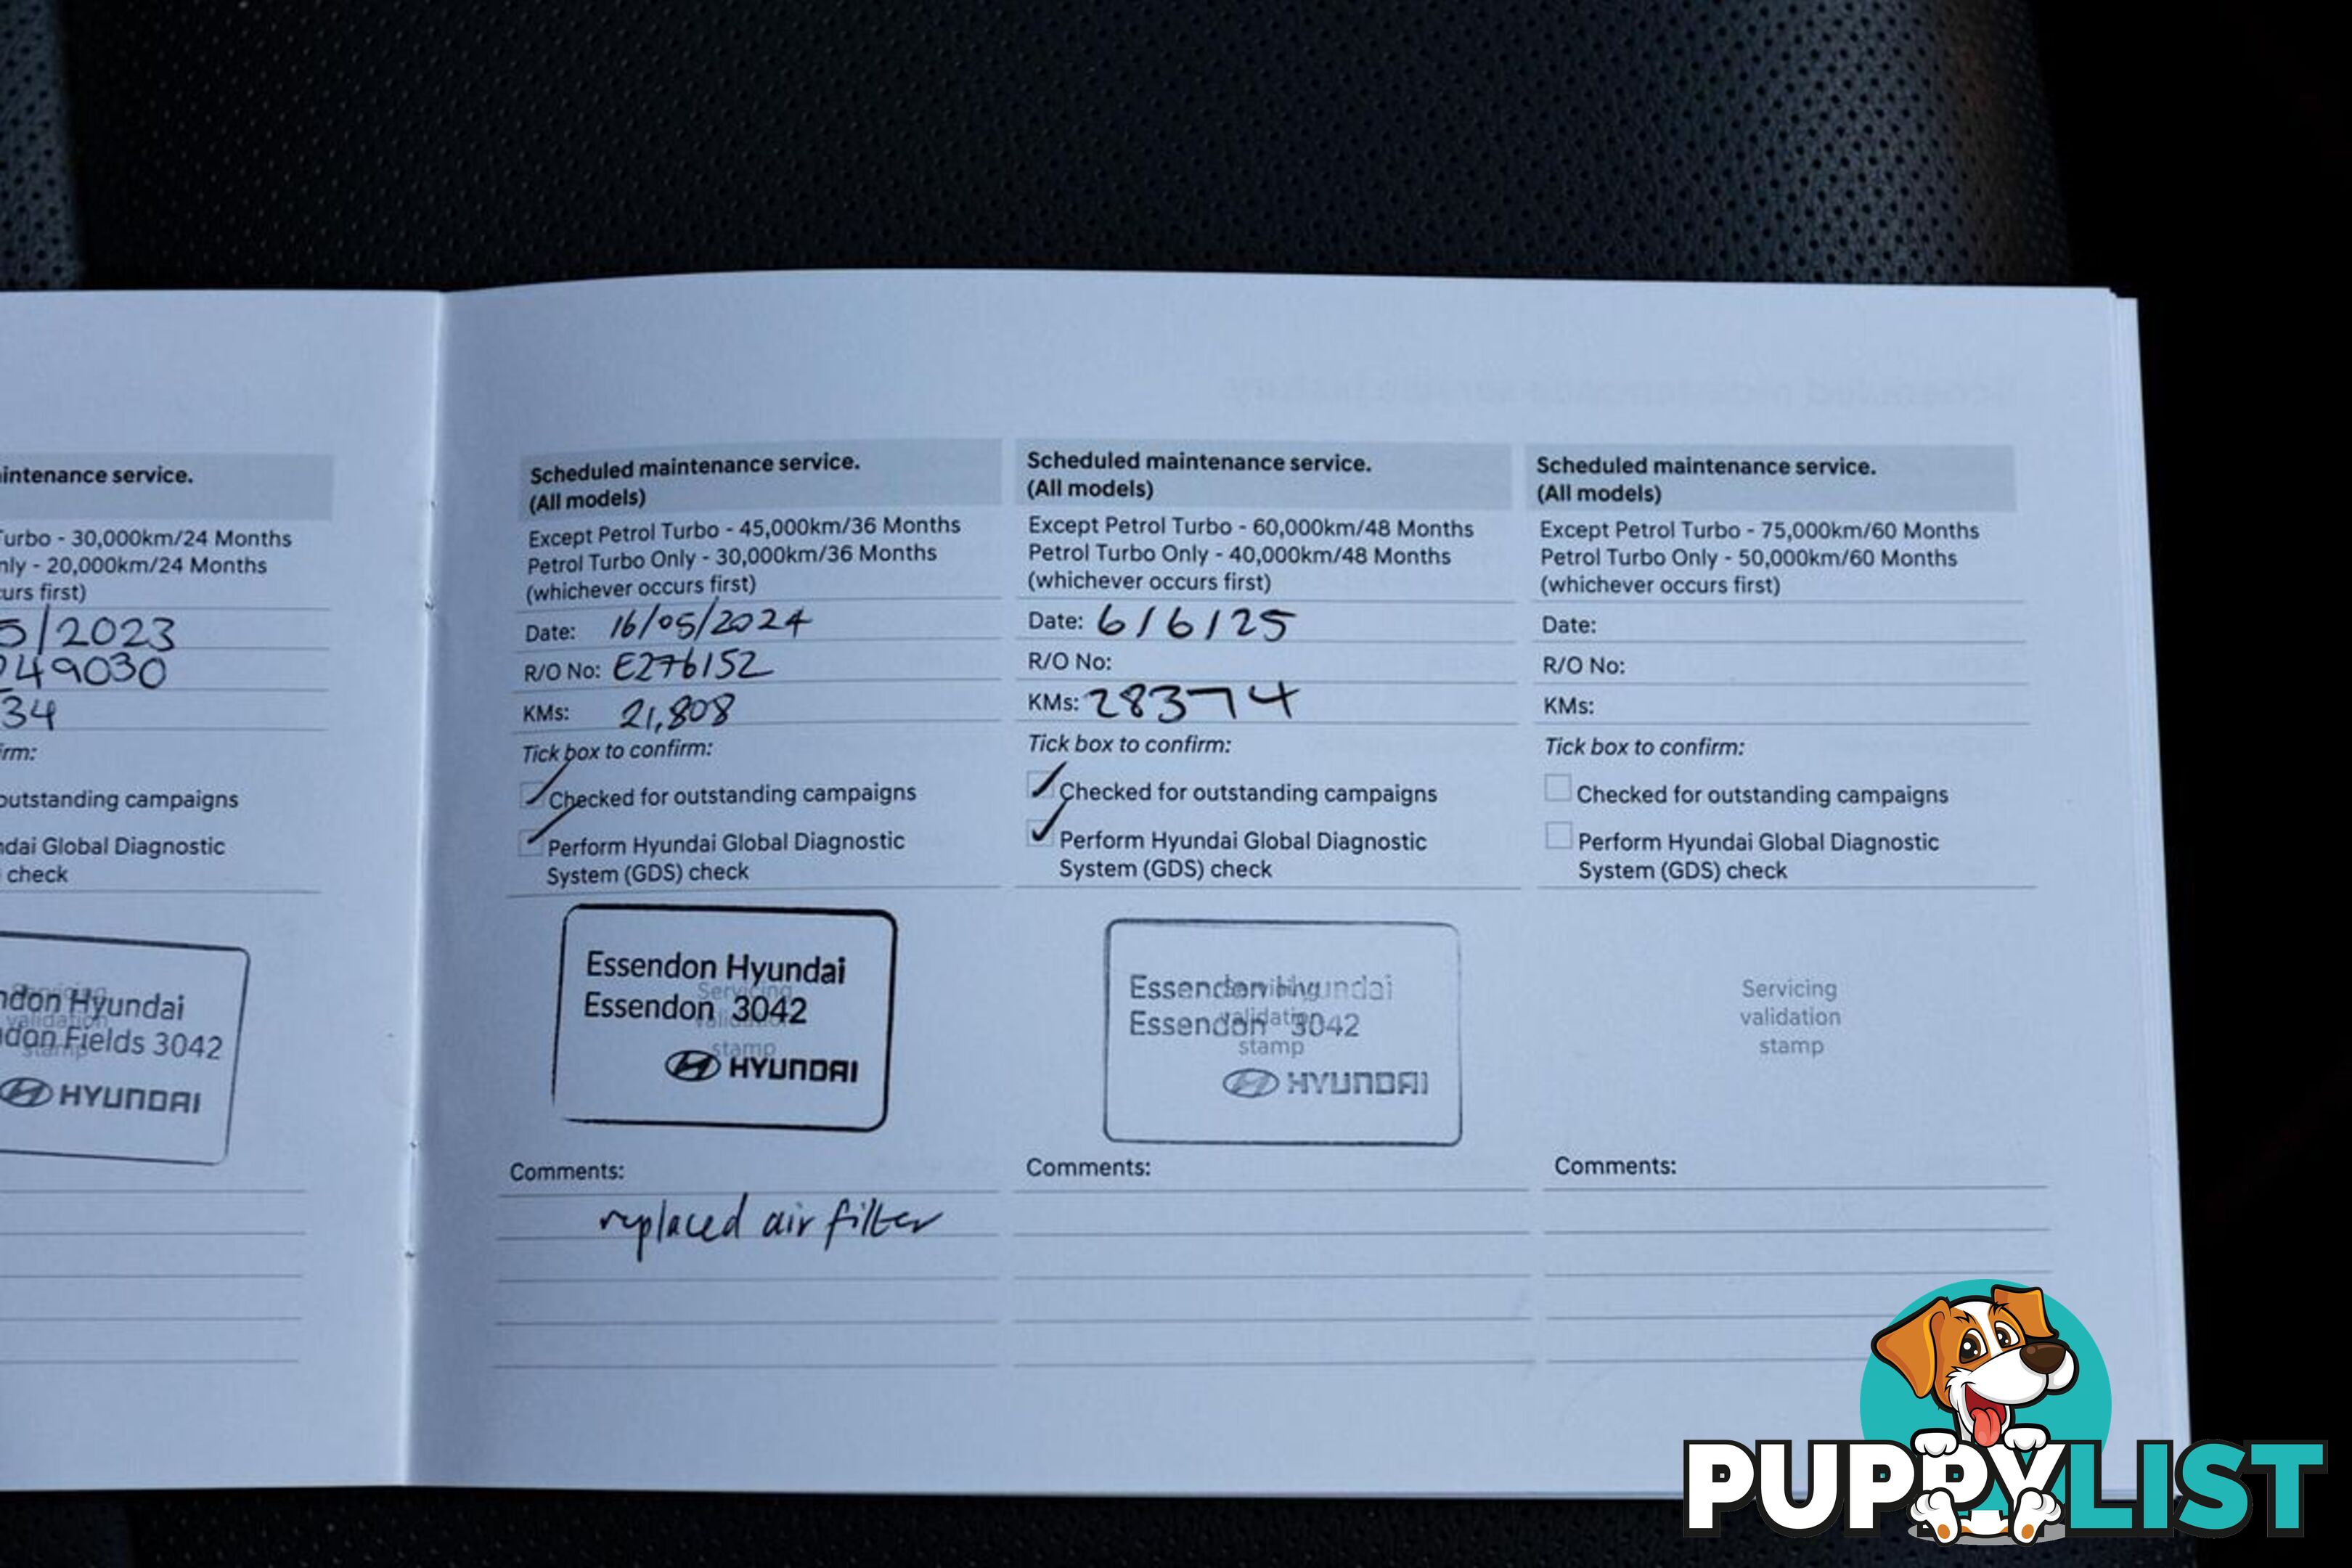 intenance service.
Turbo - 30,000km/24 Months
nly - 20,000km/24 Months
urs first)
5/2023
249030
34
irm:
outstanding campaigns
ndai Global Diagnostic
check
Servicing
validation
stamp
ndon Hyundai
ndon Fields 3042
HYUNDAI
Scheduled maintenance service.
(All models)
Except Petrol Turbo - 45,000km/36 Months
Petrol Turbo Only - 30,000km/36 Months
(whichever occurs first)
Date: 16/05/2024
R/O No: E276152
KMs: 21,808
Tick box to confirm:
Checked for outstanding campaigns
Perform Hyundai Global Diagnostic
System (GDS) check
Servicing
validation
stamp
Essendon Hyundai
Essendon 3042
HYUNDAI
Comments:
replaced air filter
Scheduled maintenance service.
(All models)
Except Petrol Turbo - 60,000km/48 Months
Petrol Turbo Only - 40,000km/48 Months
(whichever occurs first)
Date: 6/6/25
R/O No:
KMs: 28374
Tick box to confirm:
Checked for outstanding campaigns
Perform Hyundai Global Diagnostic
System (GDS) check
Servicing
validation
stamp
Essendon Hyundai
Essendon 3042
HYUNDAI
Comments:
Scheduled maintenance service.
(All models)
Except Petrol Turbo - 75,000km/60 Months
Petrol Turbo Only - 50,000km/60 Months
(whichever occurs first)
Date:
R/O No:
KMs:
Tick box to confirm:
Checked for outstanding campaigns
Perform Hyundai Global Diagnostic
System (GDS) check
Servicing
validation
stamp
Comments:
PUPPYLIST